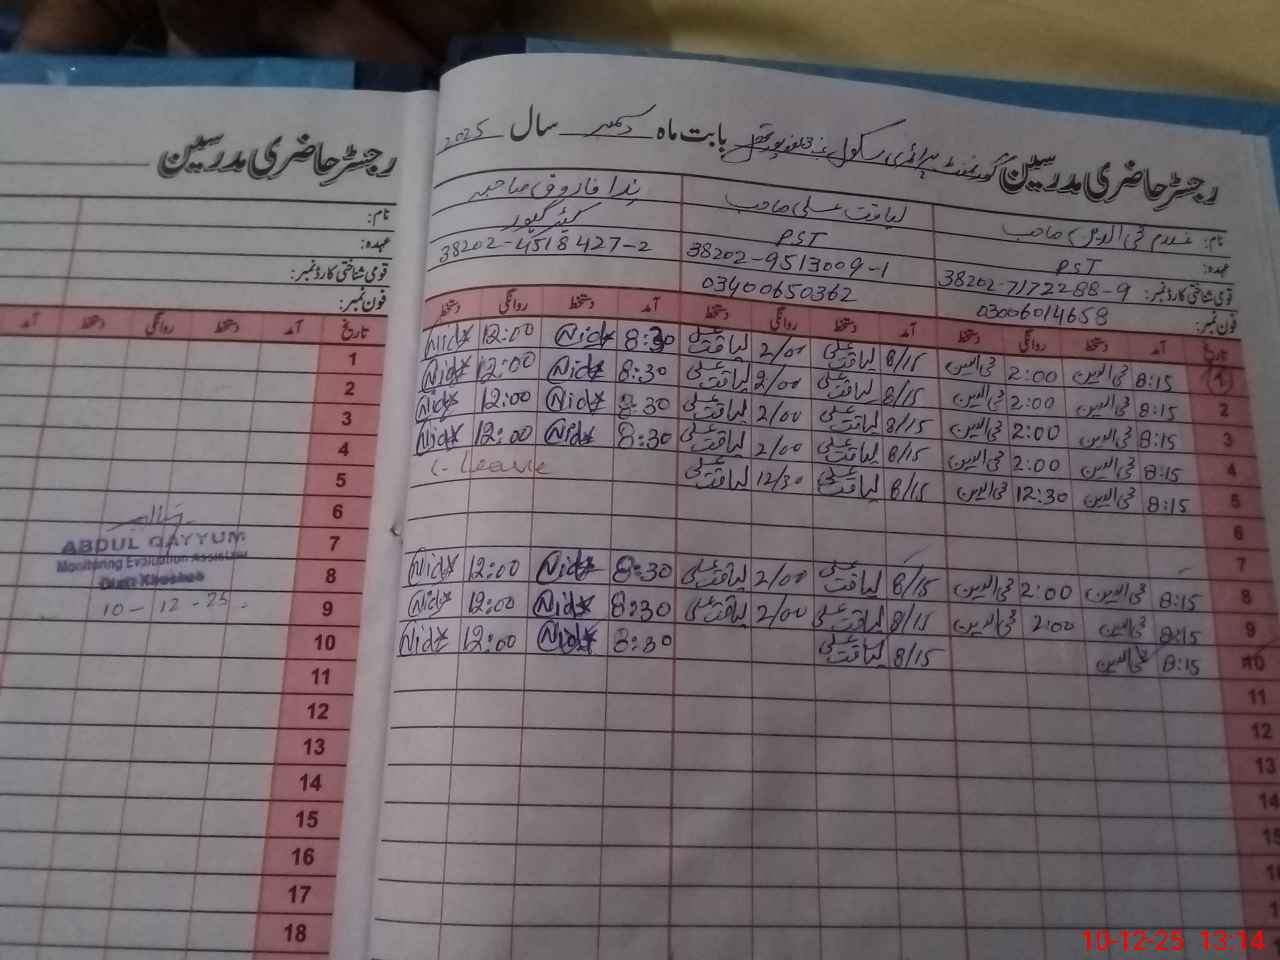 رجسٹر حاضری مدرسین گورنمنٹ پرائمری سکول بابت ماہ دسمبر سال 2025
نام: غلام محی الدین صاحب لیاقت علی صاحب ندا فاروق صاحبہ
عہدہ: PST PST کیئر گیور
قومی شناختی کارڈ نمبر: 38202-7172288-9 38202-9513009-1 38202-4518427-2
فون نمبر: 03006014658 03400650362
تاریخ آمد دستخط روانگی دستخط آمد دستخط روانگی دستخط آمد دستخط روانگی دستخط
1 8:15 محی الدین 2:00 محی الدین 8/15 لیاقت علی 2/00 لیاقت علی 8:30 Nida 12:00 Nida
2 8:15 محی الدین 2:00 محی الدین 8/15 لیاقت علی 2/00 لیاقت علی 8:30 Nida 12:00 Nida
3 8:15 محی الدین 2:00 محی الدین 8/15 لیاقت علی 2/00 لیاقت علی 8:30 Nida 12:00 Nida
4 8:15 محی الدین 2:00 محی الدین 8/15 لیاقت علی 2/00 لیاقت علی 8:30 Nida 12:00 Nida
5 8:15 محی الدین 12:30 محی الدین 8/15 لیاقت علی 12/30 لیاقت علی Leave
6
7
8 8:15 محی الدین 2:00 محی الدین 8/15 لیاقت علی 2/00 لیاقت علی 8:30 Nida 12:00 Nida
9 8:15 محی الدین 2:00 محی الدین 8/15 لیاقت علی 2/00 لیاقت علی 8:30 Nida 12:00 Nida
10 8:15 محی الدین 8/15 لیاقت علی 8:30 Nida 12:00 Nida
11
12
13
14
15
رجسٹر حاضری مدرسین
نام:
عہدہ:
قومی شناختی کارڈ نمبر:
فون نمبر:
تاریخ آمد دستخط روانگی دستخط آمد
1
2
3
4
5
6
7
8
9
10
11
12
13
14
15
16
17
18
ABDUL QAYYUM
Monitoring Evaluation Assistant
Distt Khushab
10-12-25
10-12-25 13:14